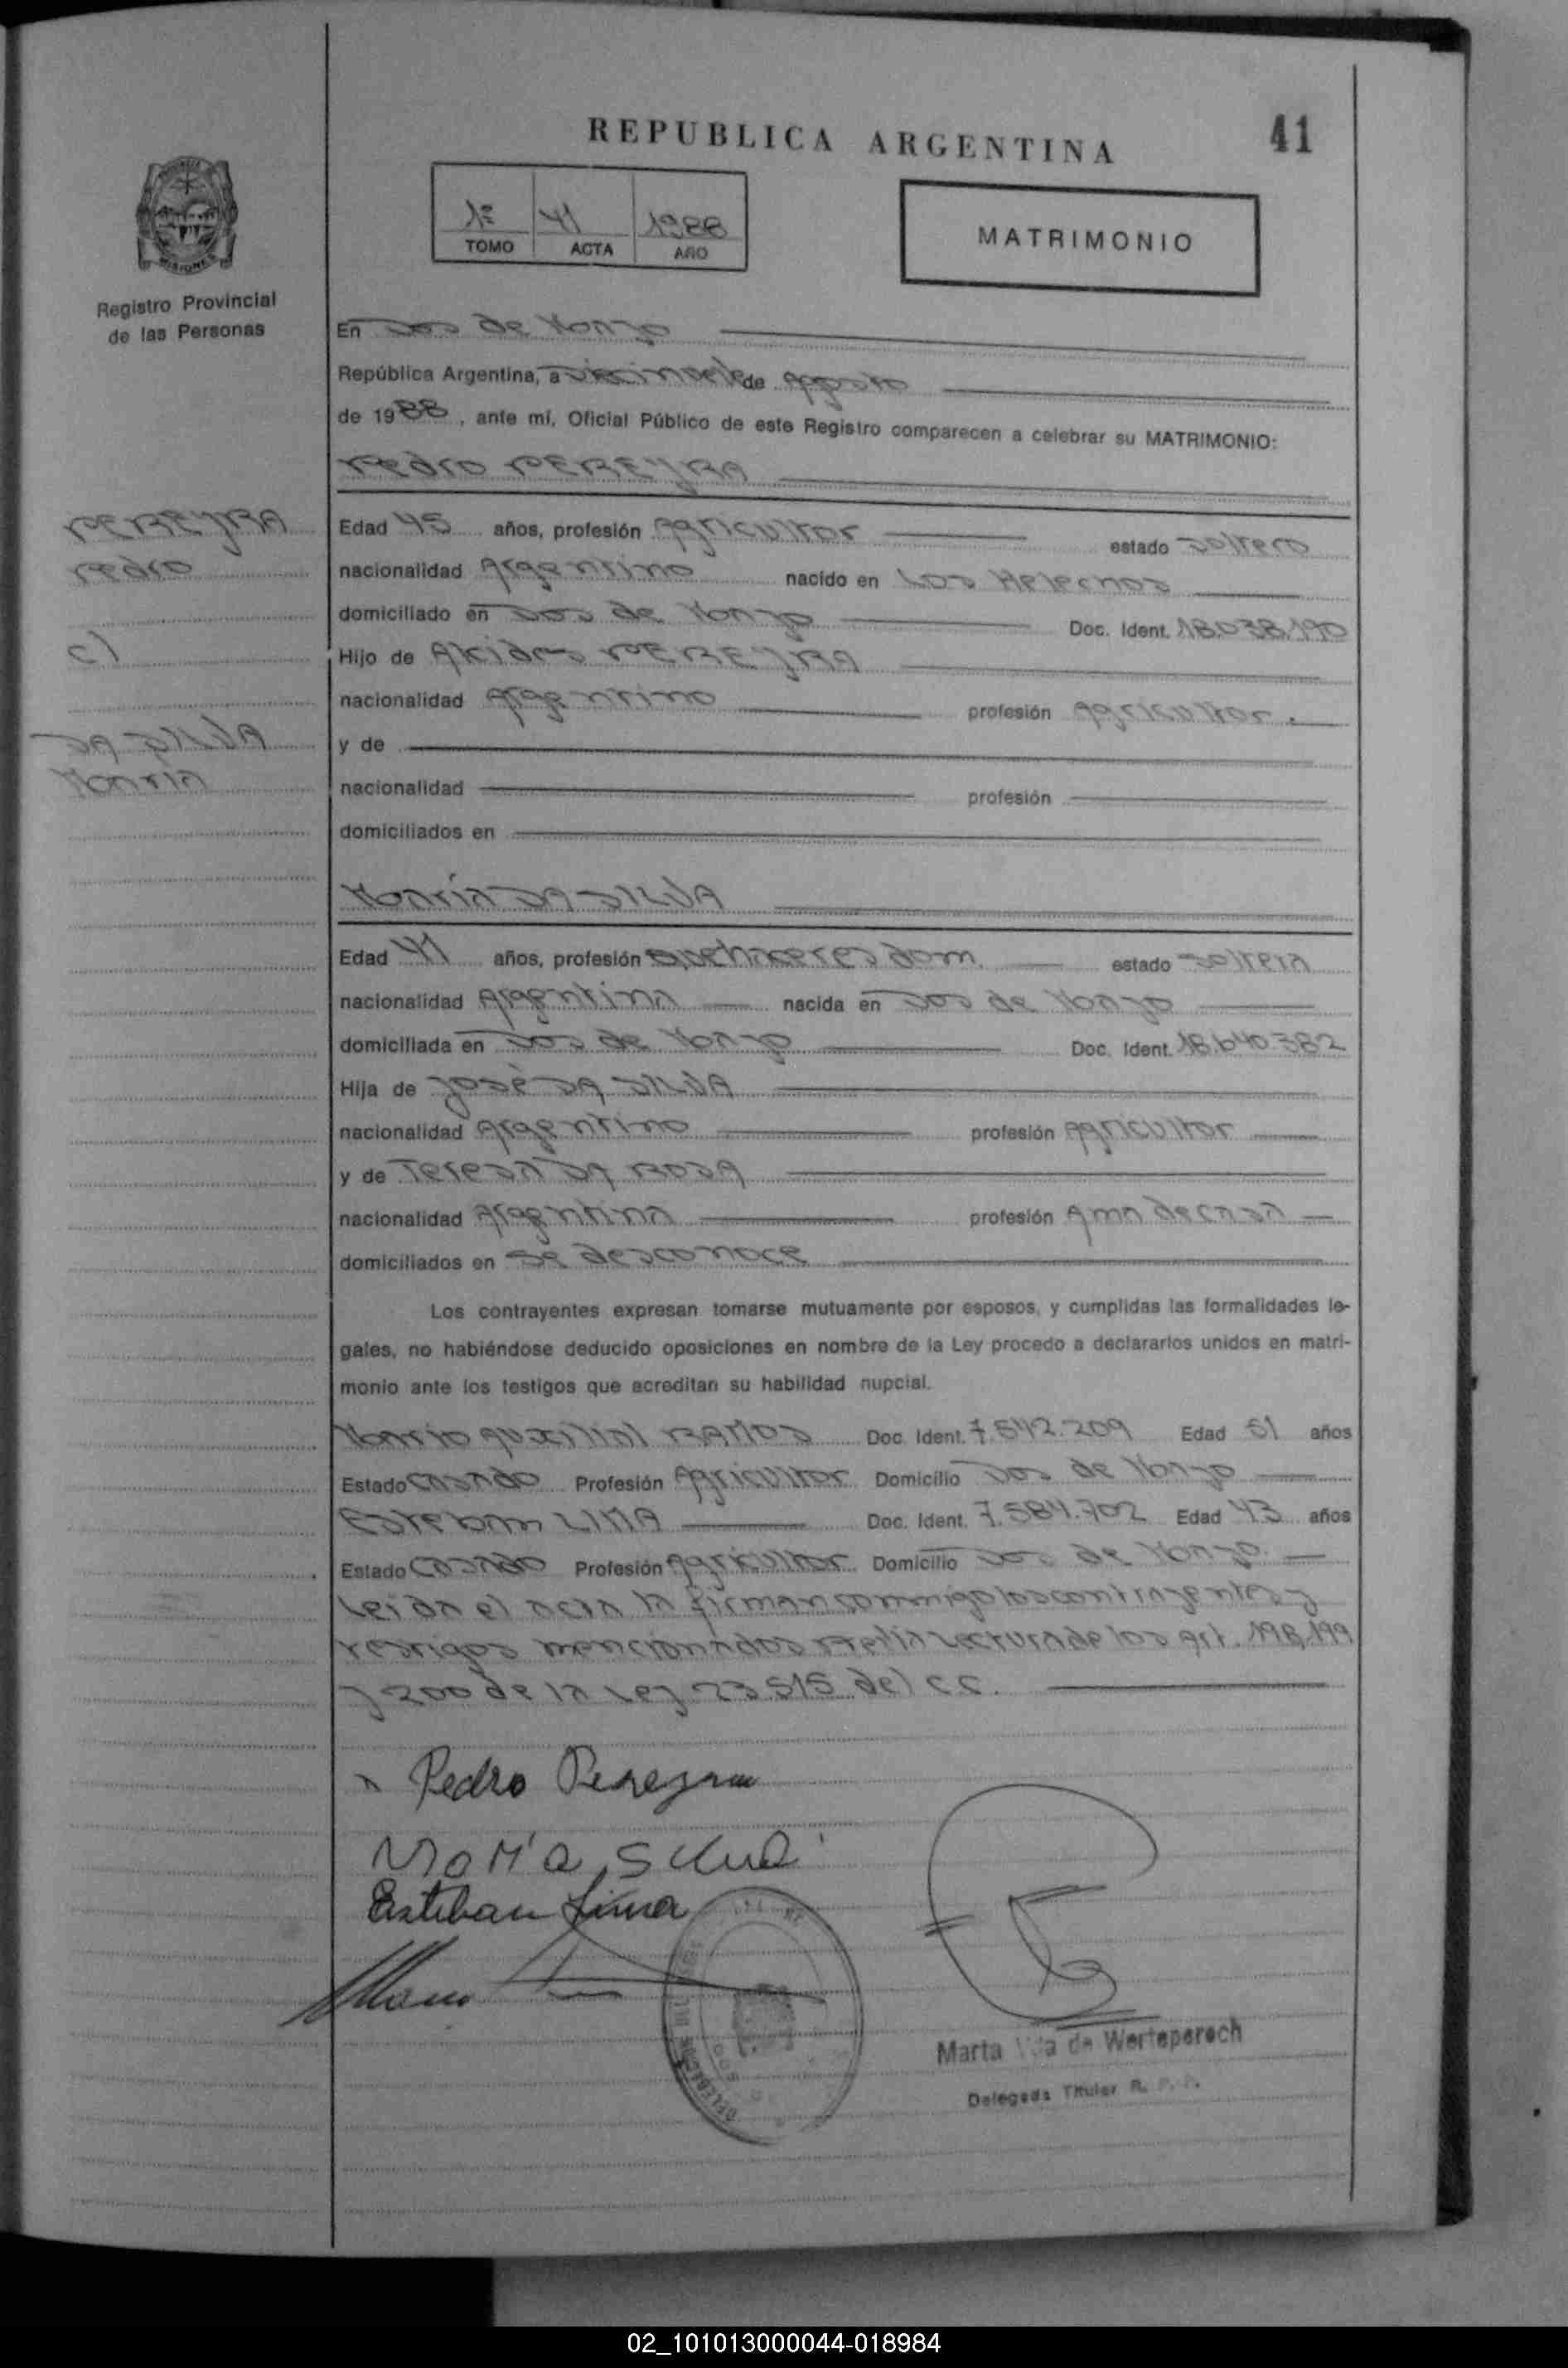 REPUBLICA ARGENTINA
41
1º 41 1988
TOMO ACTA AÑO
MATRIMONIO
MISIONES
Registro Provincial
de las Personas
En Dos de Mayo
República Argentina, a diecinueve de Agosto
de 1988, ante mí, Oficial Público de este Registro comparecen a celebrar su MATRIMONIO:
Pedro PEREYRA
PEREYRA
Pedro
c)
DA SILVA
María
Edad 45 años, profesión Agricultor estado soltero
nacionalidad Argentino nacido en Los Helechos
domiciliado en Dos de Mayo Doc. Ident. 18.038.190
Hijo de Alcides PEREYRA
nacionalidad Argentino profesión Agricultor.
y de
nacionalidad profesión
domiciliados en
María DA SILVA
Edad 41 años, profesión quehaceres dom. estado soltera
nacionalidad Argentina nacida en Dos de Mayo
domiciliada en Dos de Mayo Doc. Ident. 18.640.382
Hija de José DA SILVA
nacionalidad Argentino profesión Agricultor
y de Teresa DA ROSA
nacionalidad Argentina profesión Ama de casa
domiciliados en se desconoce
Los contrayentes expresan tomarse mutuamente por esposos, y cumplidas las formalidades le-
gales, no habiéndose deducido oposiciones en nombre de la Ley procedo a declararlos unidos en matri-
monio ante los testigos que acreditan su habilidad nupcial.
Mario RAMOS Doc. Ident. 7.542.209 Edad 51 años
Estado casado Profesión Agricultor Domicilio Dos de Mayo
Esteban LIMA Doc. Ident. 7.584.702 Edad 43 años
Estado casado Profesión Agricultor Domicilio Dos de Mayo.
Leida el acta la firman conmigo los contrayentes y
testigos mencionados lectura de los Art. 198, 199
y 200 de la Ley 23.515 del C.C.
Pedro Pereyra
María Silva
Esteban Lima
Marta Vda de Werteperech
Delegada Titular R. P. P.
02_101013000044-018984